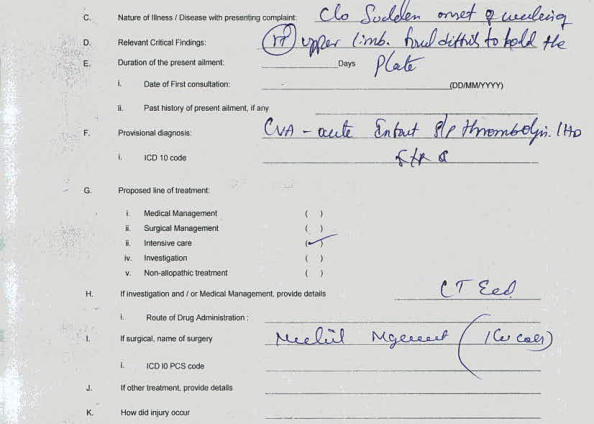 C. Nature of Illness / Disease with presenting complaint: C/o Sudden onset of weakness
D. Relevant Critical Findings: (rt) upper limb. to hold the
E. Duration of the present ailment: Days Plate
i. Date of First consultation: (DD/MM/YYYY)
ii. Past history of present ailment, if any
F. Provisional diagnosis: CVA - acute Infarct S/P thrombolysis.
i. ICD 10 code
G. Proposed line of treatment:
i. Medical Management ( )
ii. Surgical Management ( )
ii. Intensive care (✓)
iv. Investigation ( )
v. Non-allopathic treatment ( )
H. If investigation and / or Medical Management, provide details CT
i. Route of Drug Administration :
I. If surgical, name of surgery
i. ICD I0 PCS code
J. If other treatment, provide details
K. How did injury occur